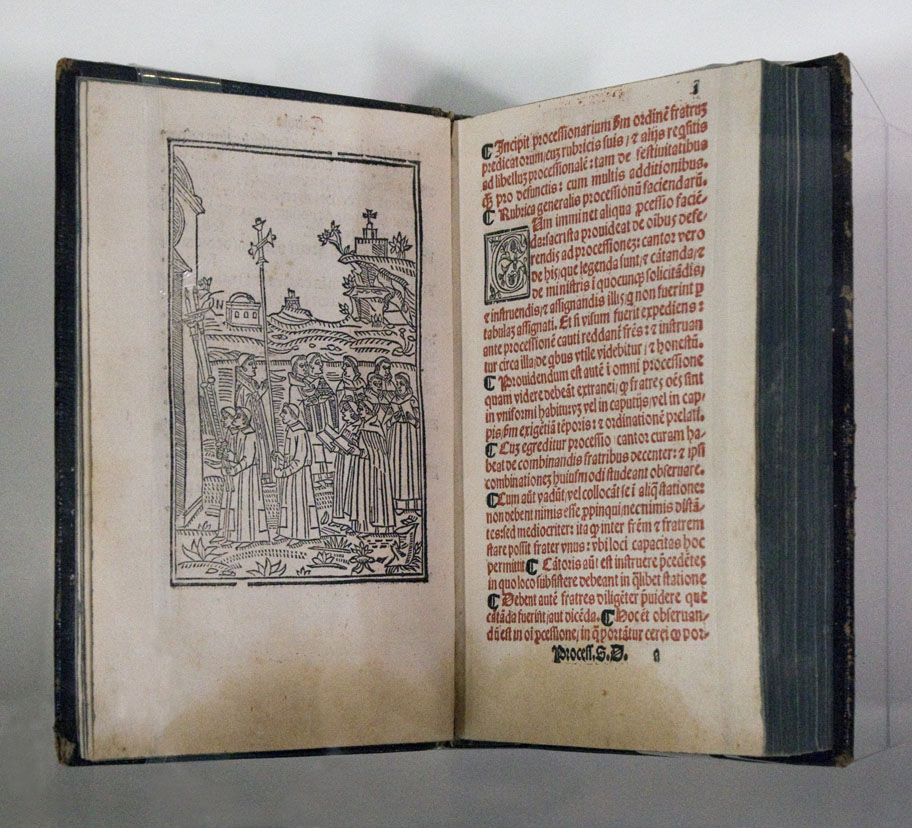 1
¶ Incipit processionarium ẜm ordinē fratruꝫ
predicatorum/cuꝫ rubricis suis/ ⁊ alijs reqsitis
ad libelluꝫ processionalē: tam de festiuitatibus
ꝙ̄ pro defunctis: cum multis additionibus.
¶ Rubrica generalis processionū faciendarū.
Cum imminet aliqua ꝓcessio faciē-
da: sacrista prouideat de oībus defe-
rendis ad processionez: cantor vero
de his que legenda sunt/ ⁊ cātanda/ ⁊
de ministris ī quocunqꝫ solicitādis/
⁊ instruendis/ ⁊ assignandis illis: q̄ non fuerint ꝑ
tabulaꝫ assignati. Et si visum fuerit expediens:
ante processionē cauti reddant̄ frēs: ⁊ instruan
tur circa illa/ de qbus vtile videbitur/ ⁊ honestū.
¶ Prouidendum est autē ī omni processione
quam videre debeāt extranei/ ꝙ fratres oēs sint
in vniformi habitu: vꝫ vel in caputijs/ vel in cap-
pis/ ẜm exigētiā tēporis: ⁊ ordinationē prelati.
¶ Cuꝫ egreditur processio cantor curam ha-
beat de combinandis fratribus decenter: ⁊ ipsi
combinationeꝫ huiusmodi studeant obseruare.
¶ Cum aūt vadūt/ vel collocāt se ī aliq̄ statione:
non debent nimis esse ꝓpinqui/ nec nimis distā-
tes: sed mediocriter: ita ꝙ inter frēm ⁊ fratrem
stare possit frater vnus: vbi loci capacitas hoc
permittit ¶ Cātoris aūt est instruere p̄cedētes
in quo loco subsistere debeant in q̄libet statione
¶ Debent autē fratres diligēter p̄uidere que
cātāda fuerint/ aut dicēda. ¶ Hoc ēt obseruan-
dū est in oī ꝓcessione/ in q̄ portātur cerei ꝙ por-
Process. S. D. a